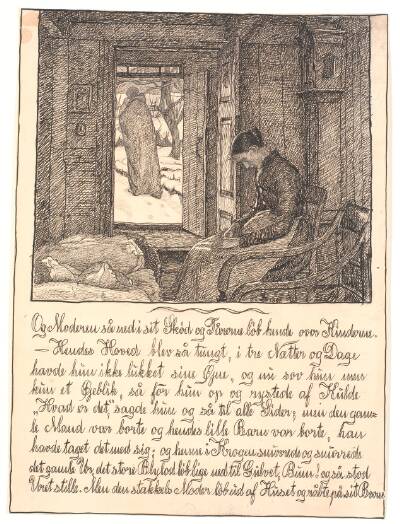 Og Moderen så ned i sit Skød og Tårerne løb hende over Kinderne.
— Hendes Hoved blev så tungt, i tre Nætter og Dage
havde hun ikke lukket sine Øjne, og nu sov hun men
kun et Øjeblik, så fór hun op og rystede af Kulde
„Hvad er det" sagde hun og så til alle Sider; men den gam-
le Mand var borte og hendes lille Barn var borte, han
havde taget det med sig; og henne i Krogen snurrede og snurrede
det gamle Ur, det store Blylod løb lige ned til Gulvet, Bum! og så stod
Uret stille. Men den stakkels Moder løb ud af Huset og råbte på sit Barn